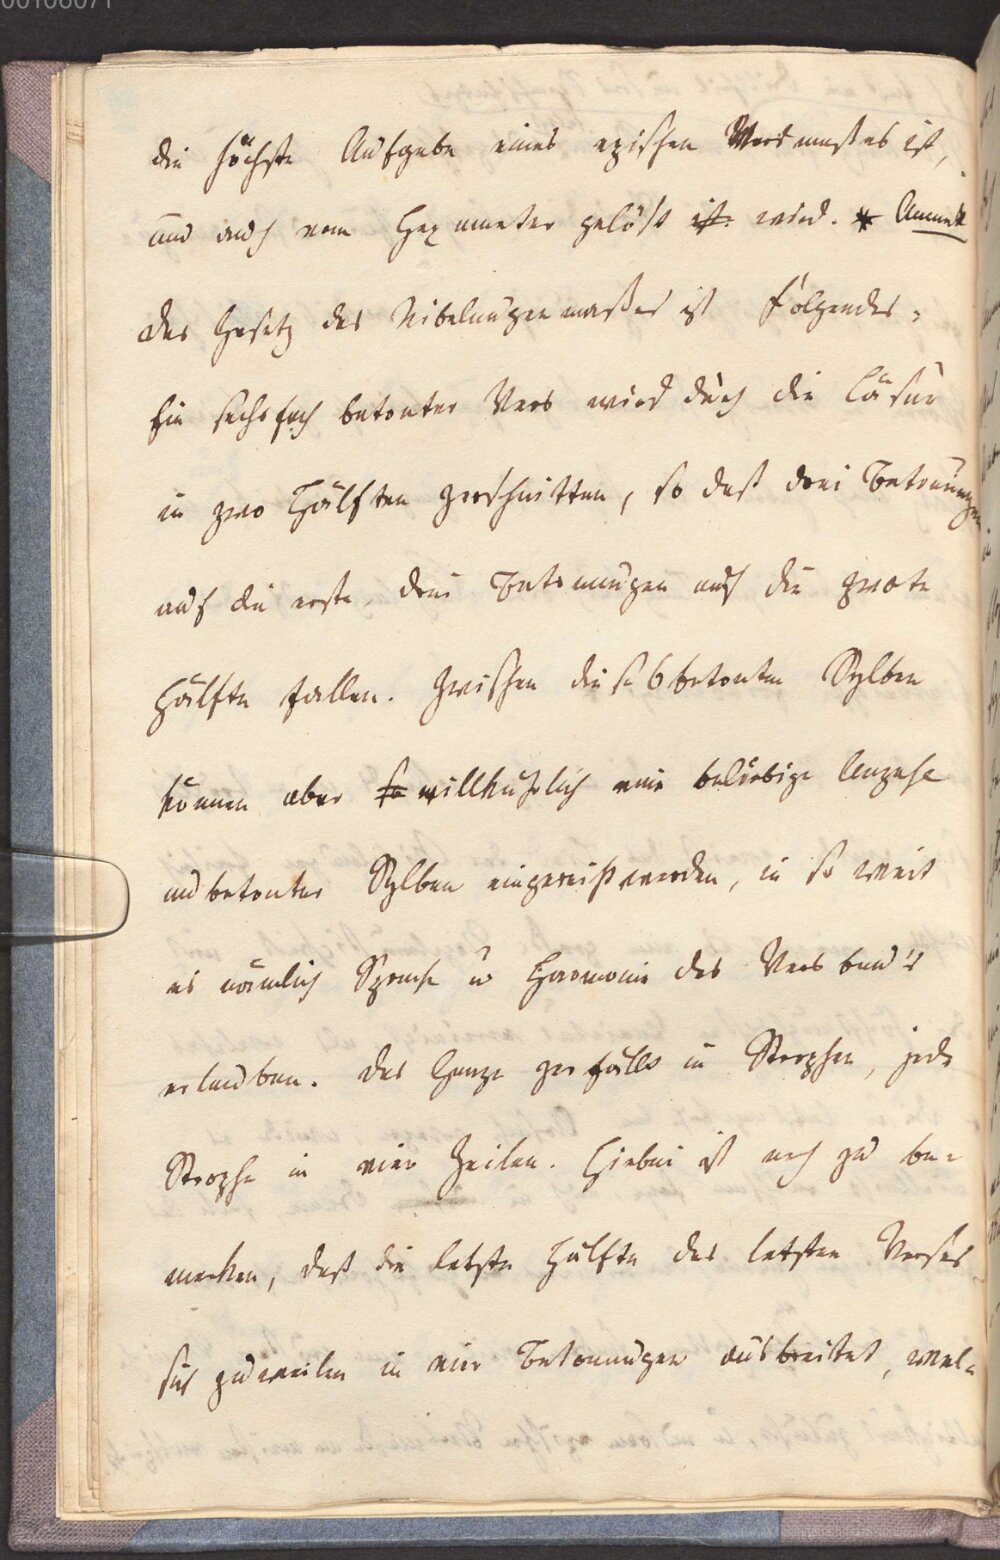 00106071
die höchste Aufgabe eines epischen Versmaßes ist,
und auch vom Hexameter gelöst ist. wird. * Anmerk
Das Gesetz des Nibelungenmaßes ist folgendes:
Ein sechsfach betonter Vers wird durch die Cäsur
in zwo Hälften zerschnitten, so daß drei Betonungen
auf die erste, drei Betonungen auf die zwote
Hälfte fallen. Zwischen diese 6 betonten Sylben
können aber so willkührlich eine beliebige Anzahl
unbetonter Sylben eingereiht werden, in so weit
es nämlich Sprache u Harmonie des Versbau's
erlauben. Das Ganze zerfällt in Strophen, jede
Strophe in vier Zeilen. Hiebei ist noch zu be-
merken, daß die letzte Hälfte des letzten Verses
sich zuweilen in vier Betonungen ausbreitet, wel-